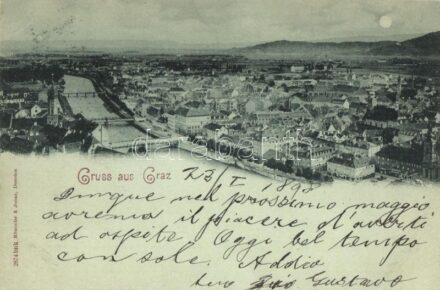 Gruss aus Graz 23/I 1898
Dunque nel prossimo maggio
avremo il piacere d'averti
ad ospite. Oggi bel tempo
con sole. Addio
tuo Gustavo
Stengel & Co., Dresden
darabanth